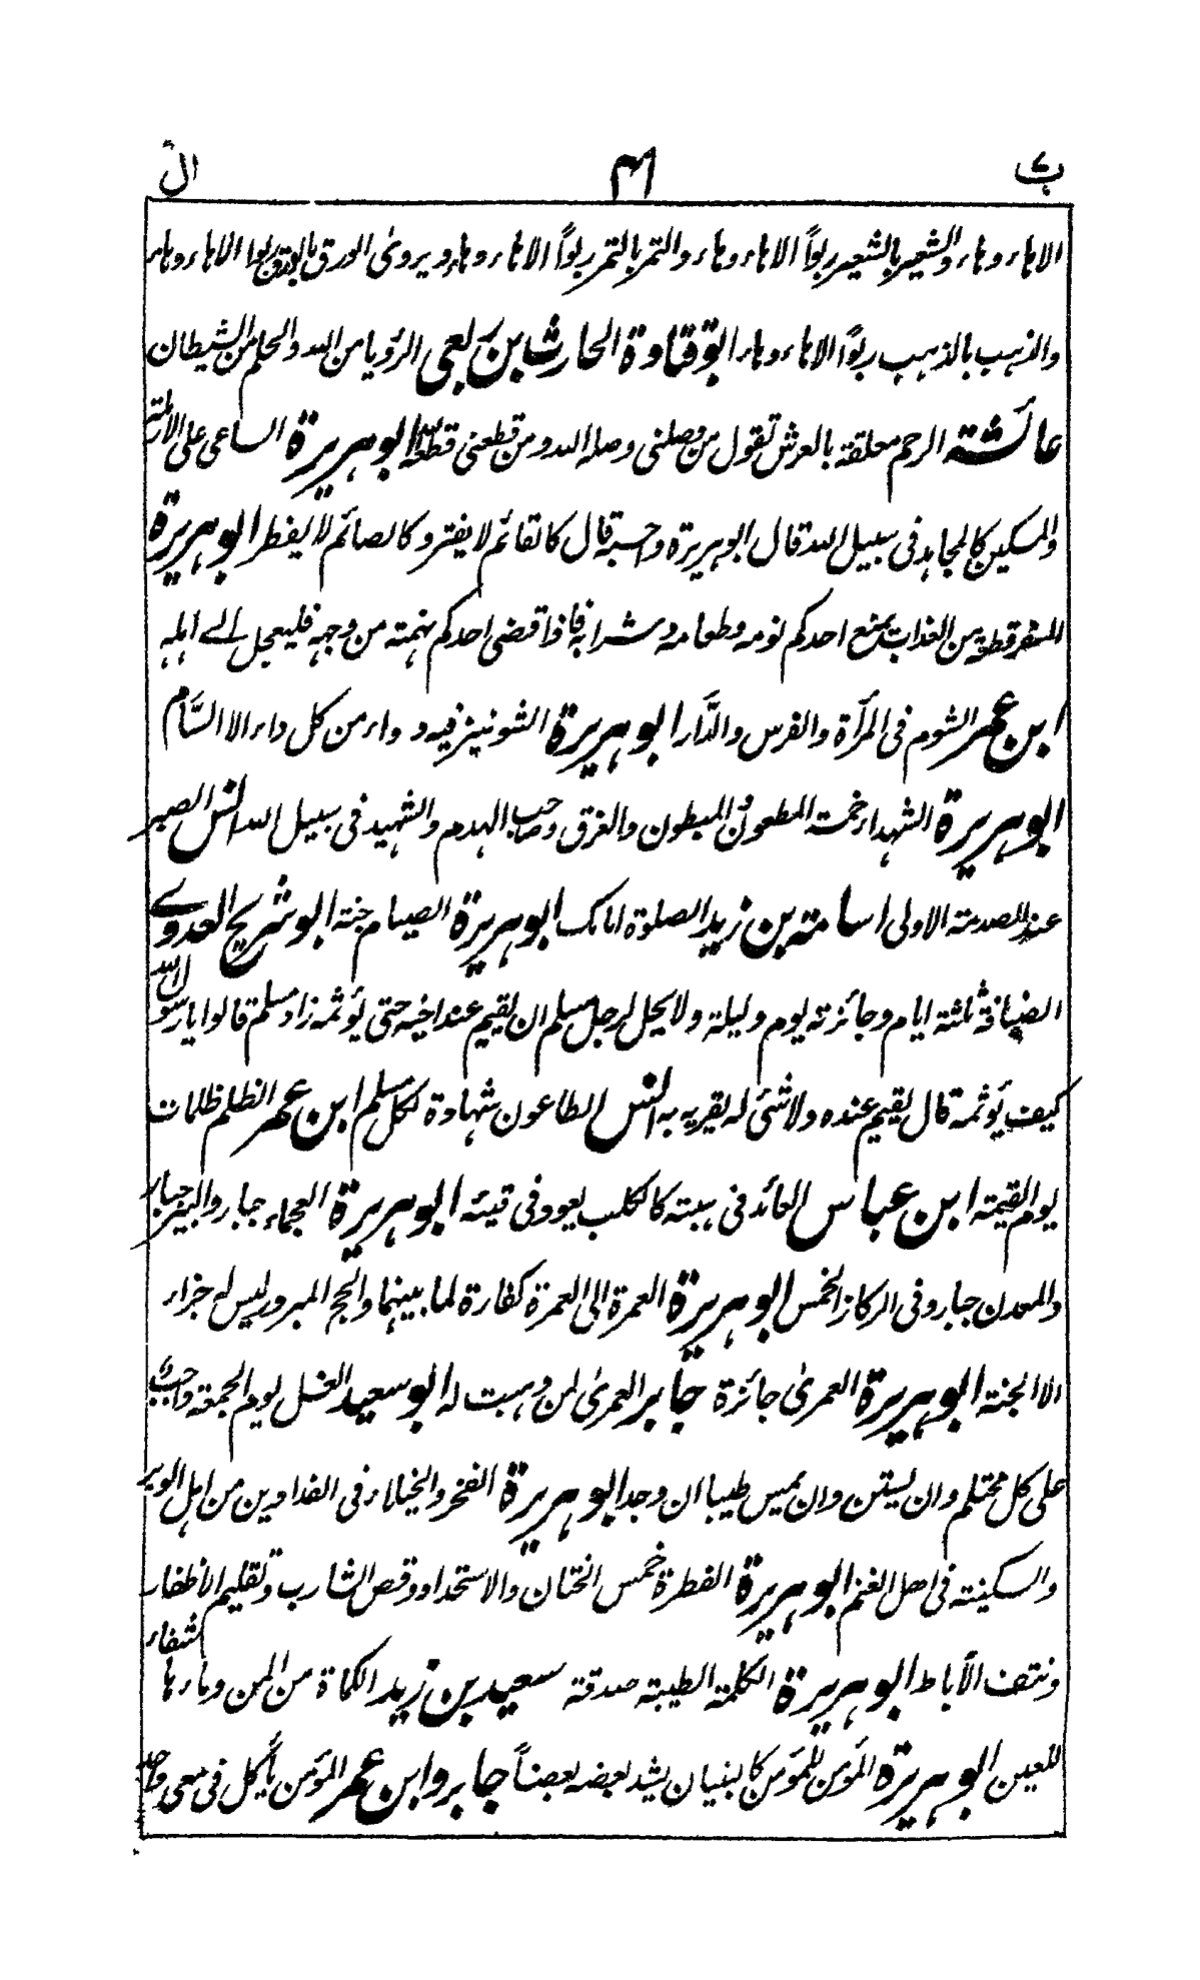 ب ٤١ ال
الا هاء وهاء والشعير بالشعير ربواً الا هاء وهاء والتمر بالتمر ربواً الا هاء وهاء ويروىٰ الورق بالورق ربوا الا هاء وهاء
والذهب بالذهب ربوًا الا هاء وهاء ابو قتادة الحارث بن ربعي الرؤيا من الله والحلم من الشيطان
عائشة الرحم معلقة بالعرش تقول من وصلنى وصله الله ومن قطعنى قطعه الله ابو هريرة الساعى على الارملة
والمسكين كالمجاهد فى سبيل الله قال ابو هريرة واحسبه قال كالقائم لا يفتر وكالصائم لا يفطر ابو هريرة
السفر قطعة من العذاب يمنع احدكم نومه وطعامه وشرابه فاذا قضى احدكم نهمته من وجهه فليعجل الے اهله
ابن عمر الشوم فى المرأة والفرس والدَّار ابو هريرة الشونيز فيه دواء من كل داء الا السَّام
ابو هريرة الشهداء خمسة المطعون والمبطون والغرق وصاحب الهدم والشهيد فى سبيل الله انس الصبر
عند الصدمة الاولى اسامة بن زيد الصلوة امامك ابو هريرة الصيام جنة ابو شريح العدوے
الضيافة ثلثة ايام وجائزته يوم وليلة ولا يحل لرجل مسلم ان يقيم عند اخيه حتى يؤثمه زاد مسلم قالوا يا رسول الله
كيف يؤثمه قال يقيم عنده ولا شئ له يقريه به انس الطاعون شهادة لكل مسلم ابن عمر الظلم ظلمات
يوم القيمة ابن عباس العائد فى هبته كالكلب يعود فى قيئه ابو هريرة العجماء جبار والبير جبار
والمعدن جبار وفى الركاز الخمس ابو هريرة العمرة الى العمرة كفارة لما بينهما والحج المبرور ليس له جزاء
الا الجنة ابو هريرة العمرىٰ جائزة جابر العمرىٰ لمن وهبت له ابو سعيد الغسل يوم الجمعة واجب
على كل محتلم وان يستن وان يمس طيبا ان وجد ابو هريرة الفخر والخيلاء فى الفدادين من اهل الوبر
والسكينة فى اهل الغنم ابو هريرة الفطرة خمس الختان والاستحداد وقص الشارب وتقليم الاظفار
ونتف الآباط ابو هريرة الكلمة الطيبة صدقة سعيد بن زيد الكماة من المن وماءها شفاء
للعين ابو هريرة المؤمن للمؤمن كالبنيان يشد بعضه بعضاً جابر وابن عمر المؤمن يأكل فى معى واحد